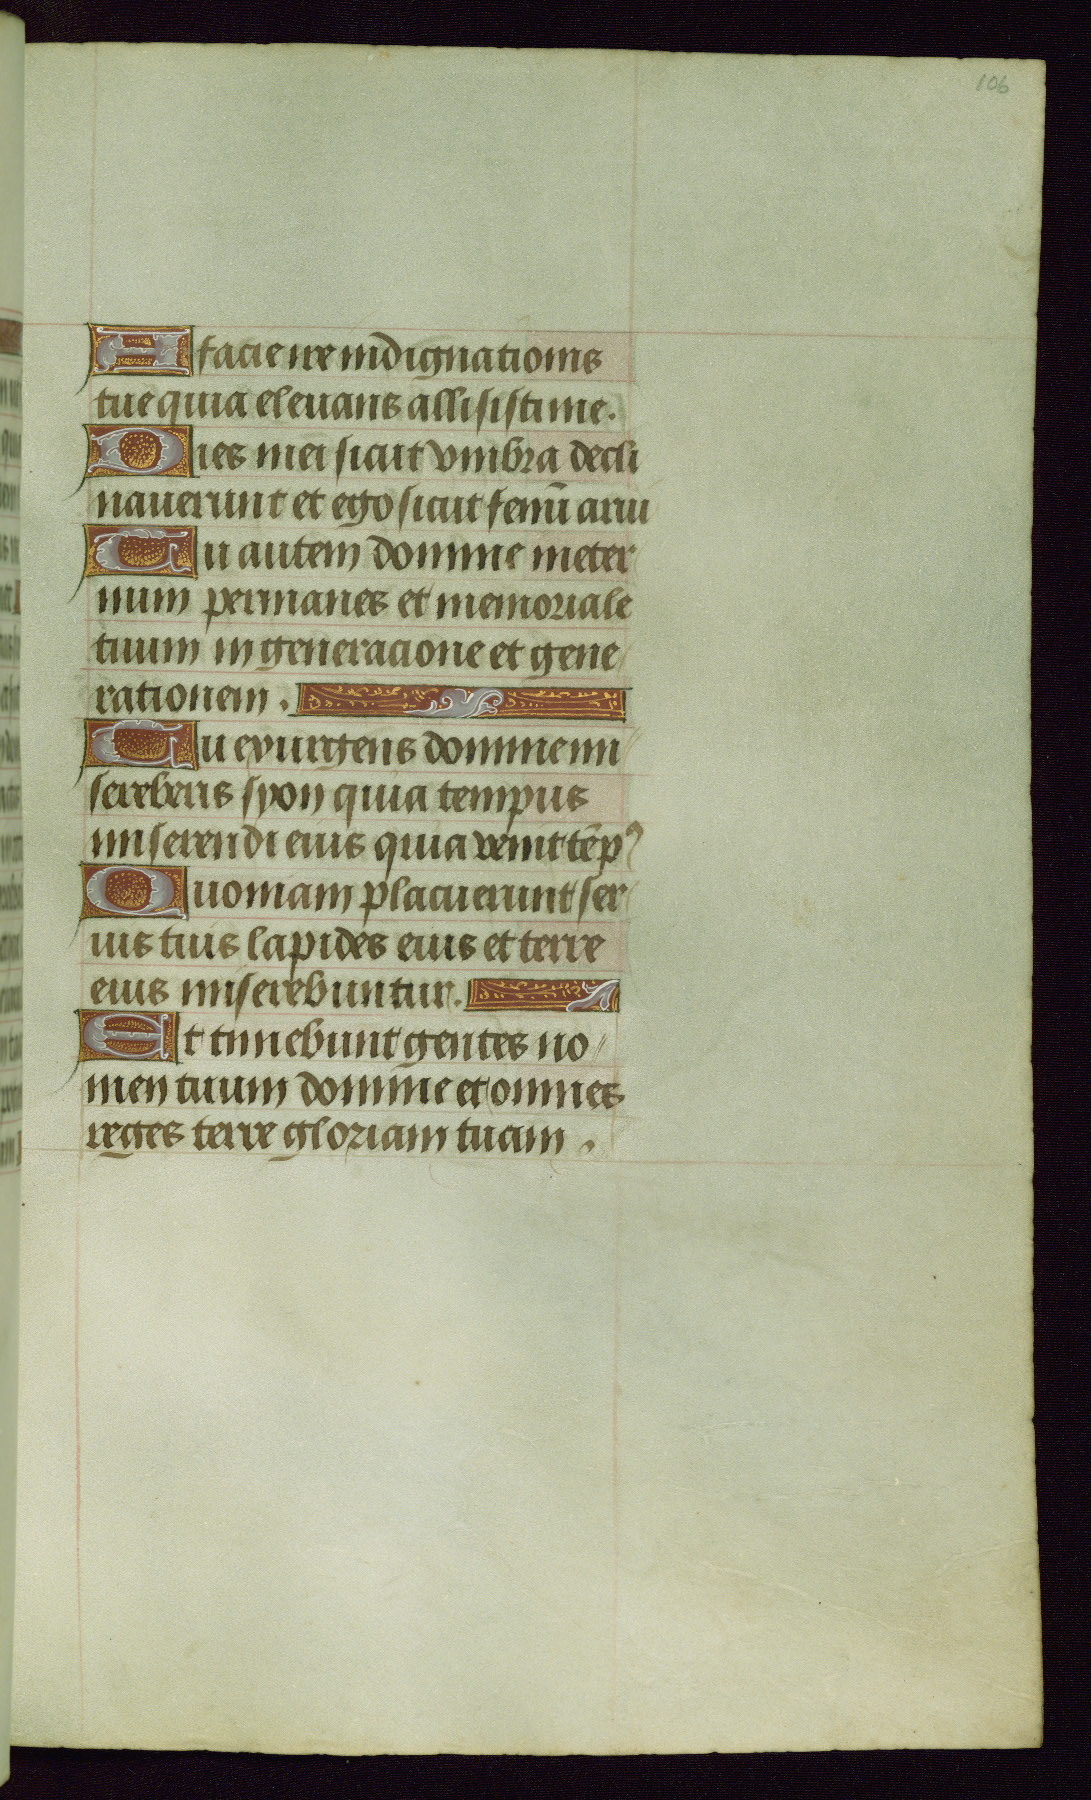 106
A facie ire indignationis
tue quia elevans allisisti me.
Dies mei sicut vmbra decli
nauerunt et ego sicut fenū arui
Tu autem domine in eter
num permanes et memoriale
tuum in generacione et gene
rationem.
Tu exurgens domine mi
sereberis syon quia tempus
miserendi eius quia venit tēpꝰ
Quoniam placuerunt ser
uis tuis lapides eius et terre
eius miserebuntur.
Et timebunt gentes no
men tuum domine et omnes
reges terre gloriam tuam.